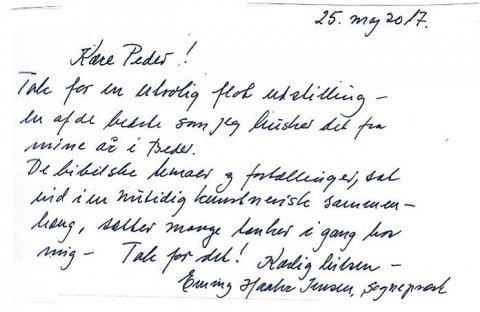 25. maj 2017.
Kære Peder!
Tak for en utrolig flot udstilling –
en af de bedste som jeg husker det fra
mine år i Beder.
De bibelske temaer og fortællinger, sat
ind i en nutidig kunstnerisk sammen-
hæng, sætter mange tanker i gang hos
mig – Tak for det! Kærlig hilsen –
Jensen, sognepræst